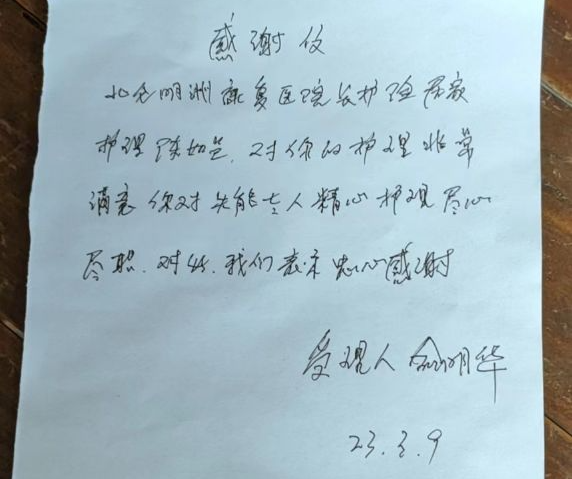 感谢仪
北仑明洲康复医院长护险居家
护理陈如兰，对你的护理非常
满意 你对失能老人精心护理尽心
尽职．对此．我们表示忠心感谢
受理人 俞明华
23.3.9